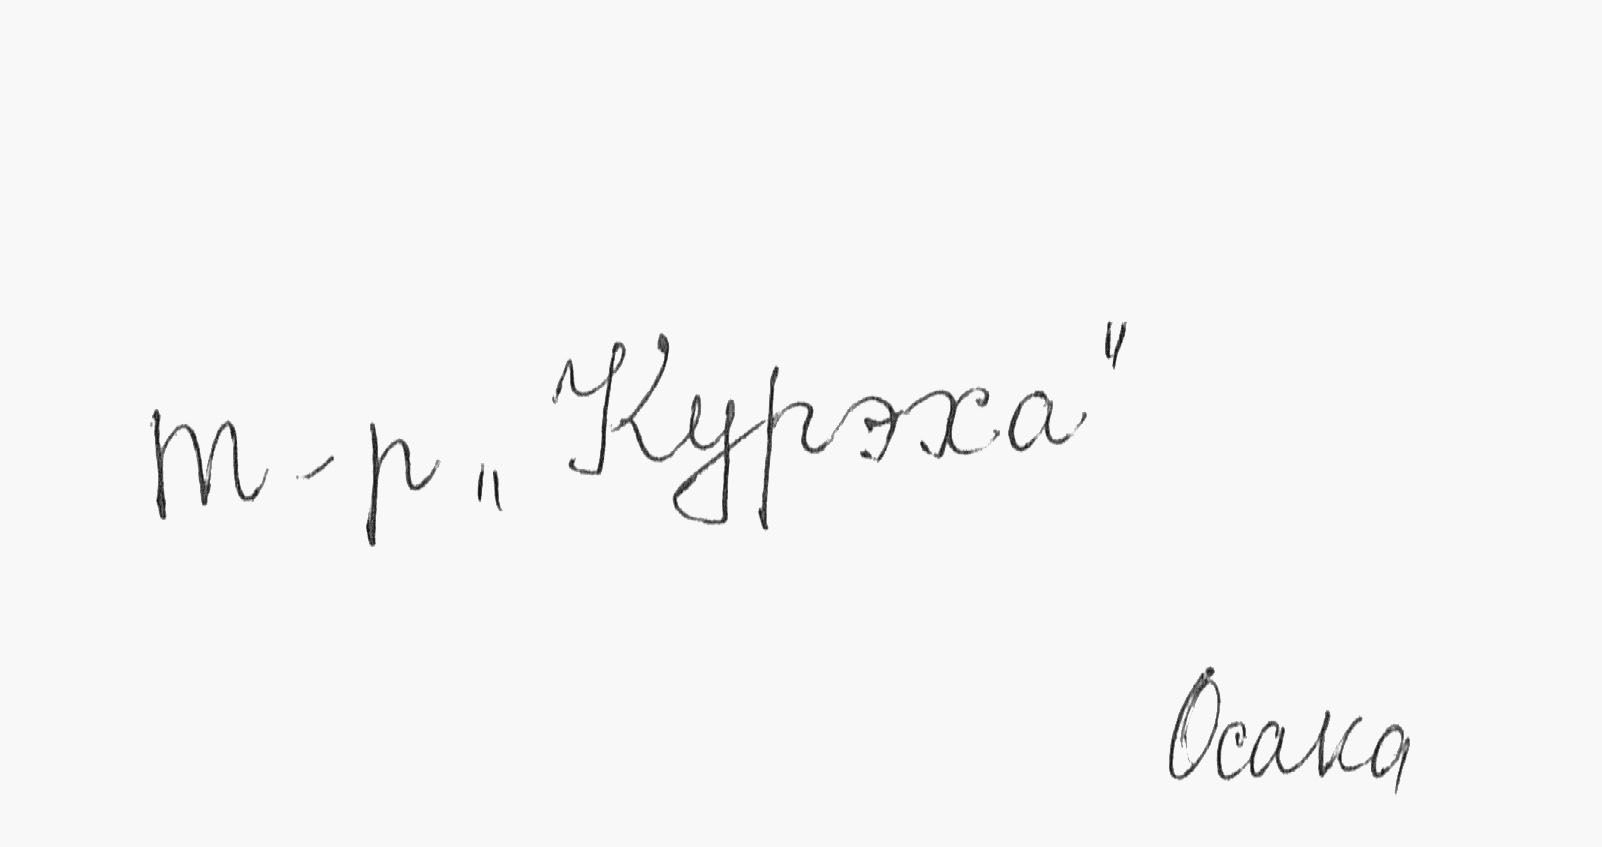 т-р „Курэха"
Осака